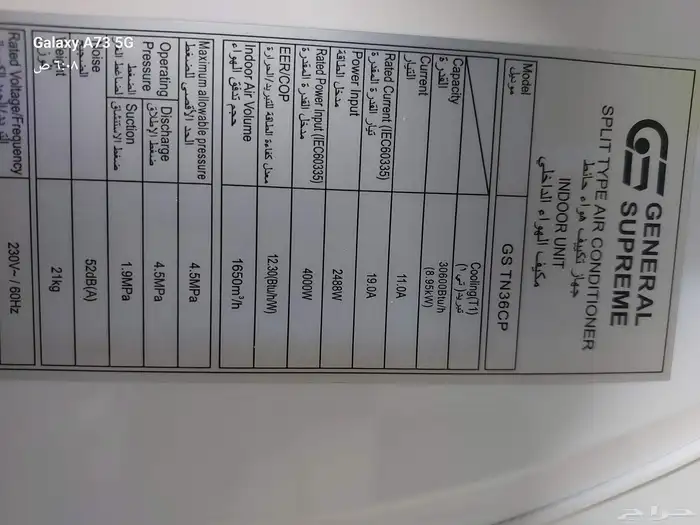 Galaxy A73 5G
GENERAL
SUPREME
SPLIT TYPE AIR CONDITIONER
جهاز تكييف هواء حائط
INDOOR UNIT
مكيف الهواء الداخلي
Model موديل GS TN36CP
Cooling(T1) تبريد (تي ١)
Capacity القدرة 30600Btu/h (8.95kW)
Current التيار 11.0A
Rated Current (IEC60335) تيار القدرة المقدرة 19.0A
Power Input مدخل الطاقة 2488W
Rated Power Input (IEC60335) مدخل القدرة المقدرة 4000W
EER/COP معدل كفاءة الطاقة للتبريد/الحرارة 12.30(Btu/h/W)
Indoor Air Volume حجم تدفق الهواء 1650m³/h
Maximum allowable pressure الحد الأقصى للضغط 4.5MPa
Operating Pressure الضغط Discharge ضغط الإطلاق 4.5MPa
Suction ضغط الاستنشاق 1.9MPa
52dB(A)
21kg
Rated Voltage/Frequency 230V~ / 60Hz
حراج